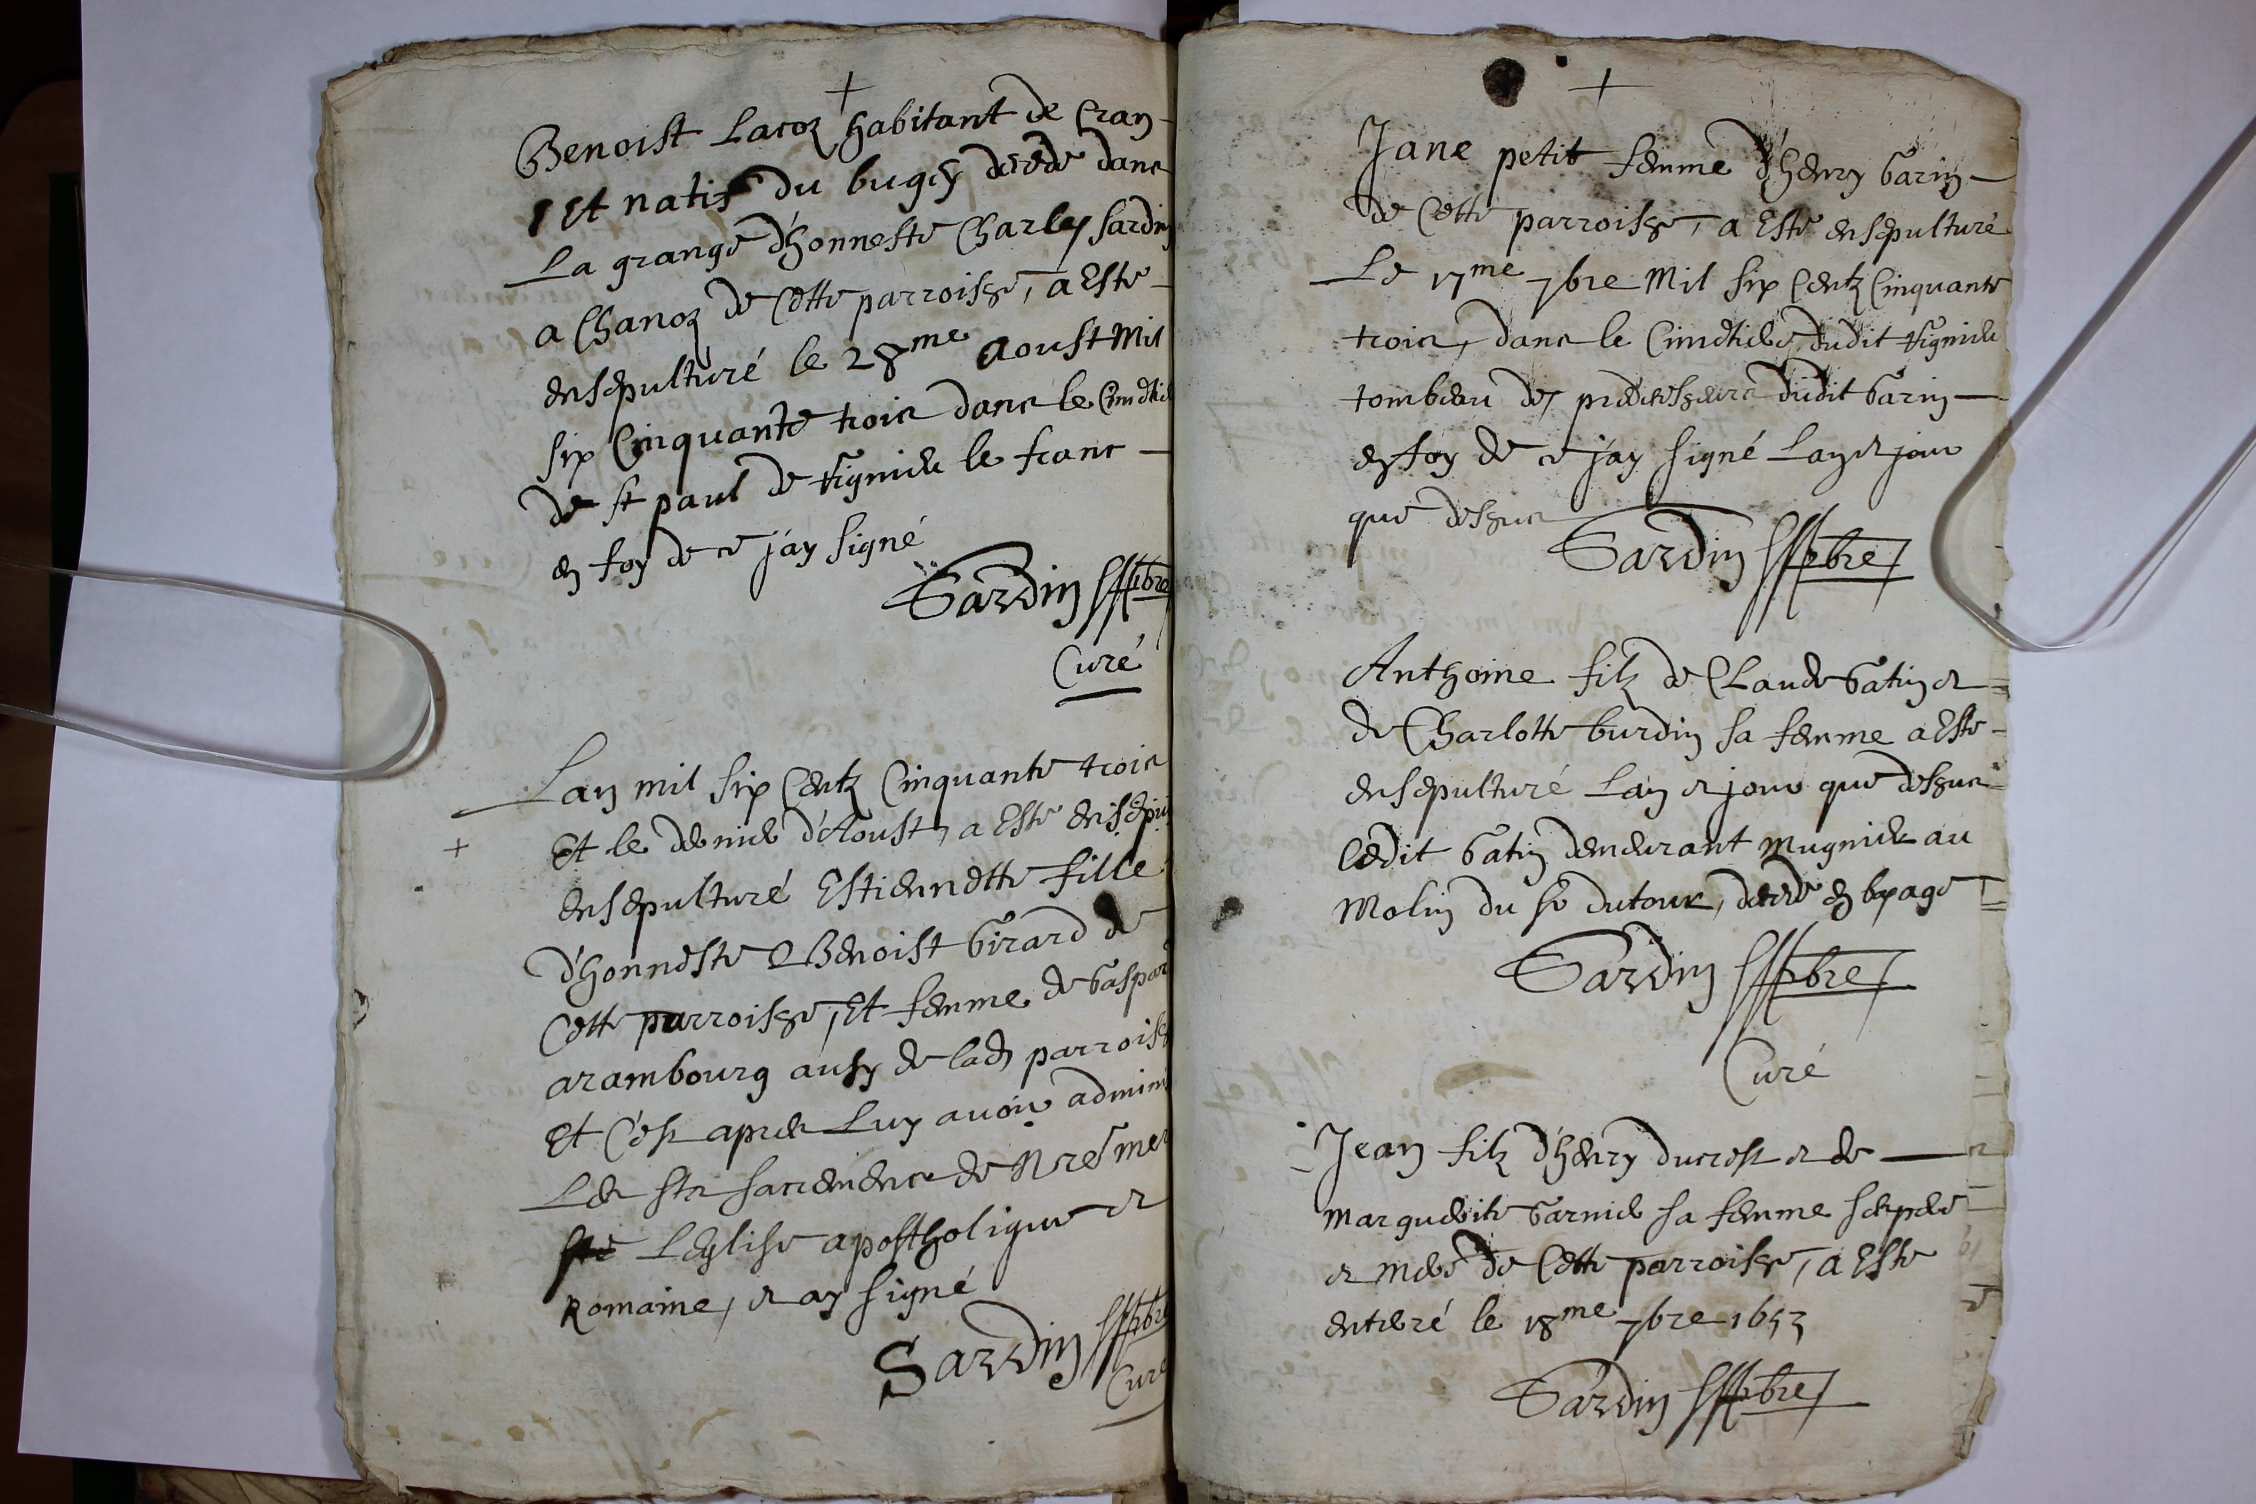 +
Benoist Lacoz habitant de Cran-
Et natif du bugey decede dans
La grange d'honneste Charles sardin
a Chanoz de Cette parroisse, a Este
ensepulturé le 28me Aoust Mil
six Cinquante trois dans le Cimetie
de st paul de
en foy de ce j'ay signé
Sardin pbre
Curé
Lan mil six Centz Cinquante trois
+ Et le dernier d'Aoust, a Este
ensepulturé Estiennette fille
d'honneste Benoist Girard de
Cette parroisse, Et femme de Gaspar
arambourg ausy de lad parroiss
Et C'est apres Luy avoir admini
Les sts sacremens de Nre mer
ste L'eglise apostholique et
Romaine, et ay signé
Sardin pbre
Curé
+
Jane petit femme d'henry Garin
de Cette parroisse, a Este ensepulturé
Le 17me 7bre Mil six Centz Cinquante
trois, dans le Cimetiere dudit
tombeau des predecesseurs dudit Garin
en foy de ce j'ay signé Lan et jour
que dessus
Sardin pbre
Anthoine filz de Claude Gatin et
de Charlotte burdin sa femme a Este
ensepulturé Lan et jour que dessus
ledit Gatin demeurant mugnier au
Molin du sr dutour, decede en
Sardin pbre
Curé
Jean filz d'henry ducrest et de
marguerite Garnier sa femme ses pere
et mere de Cette parroisse, a Este
enterré le 18me 7bre 1653
Sardin pbre